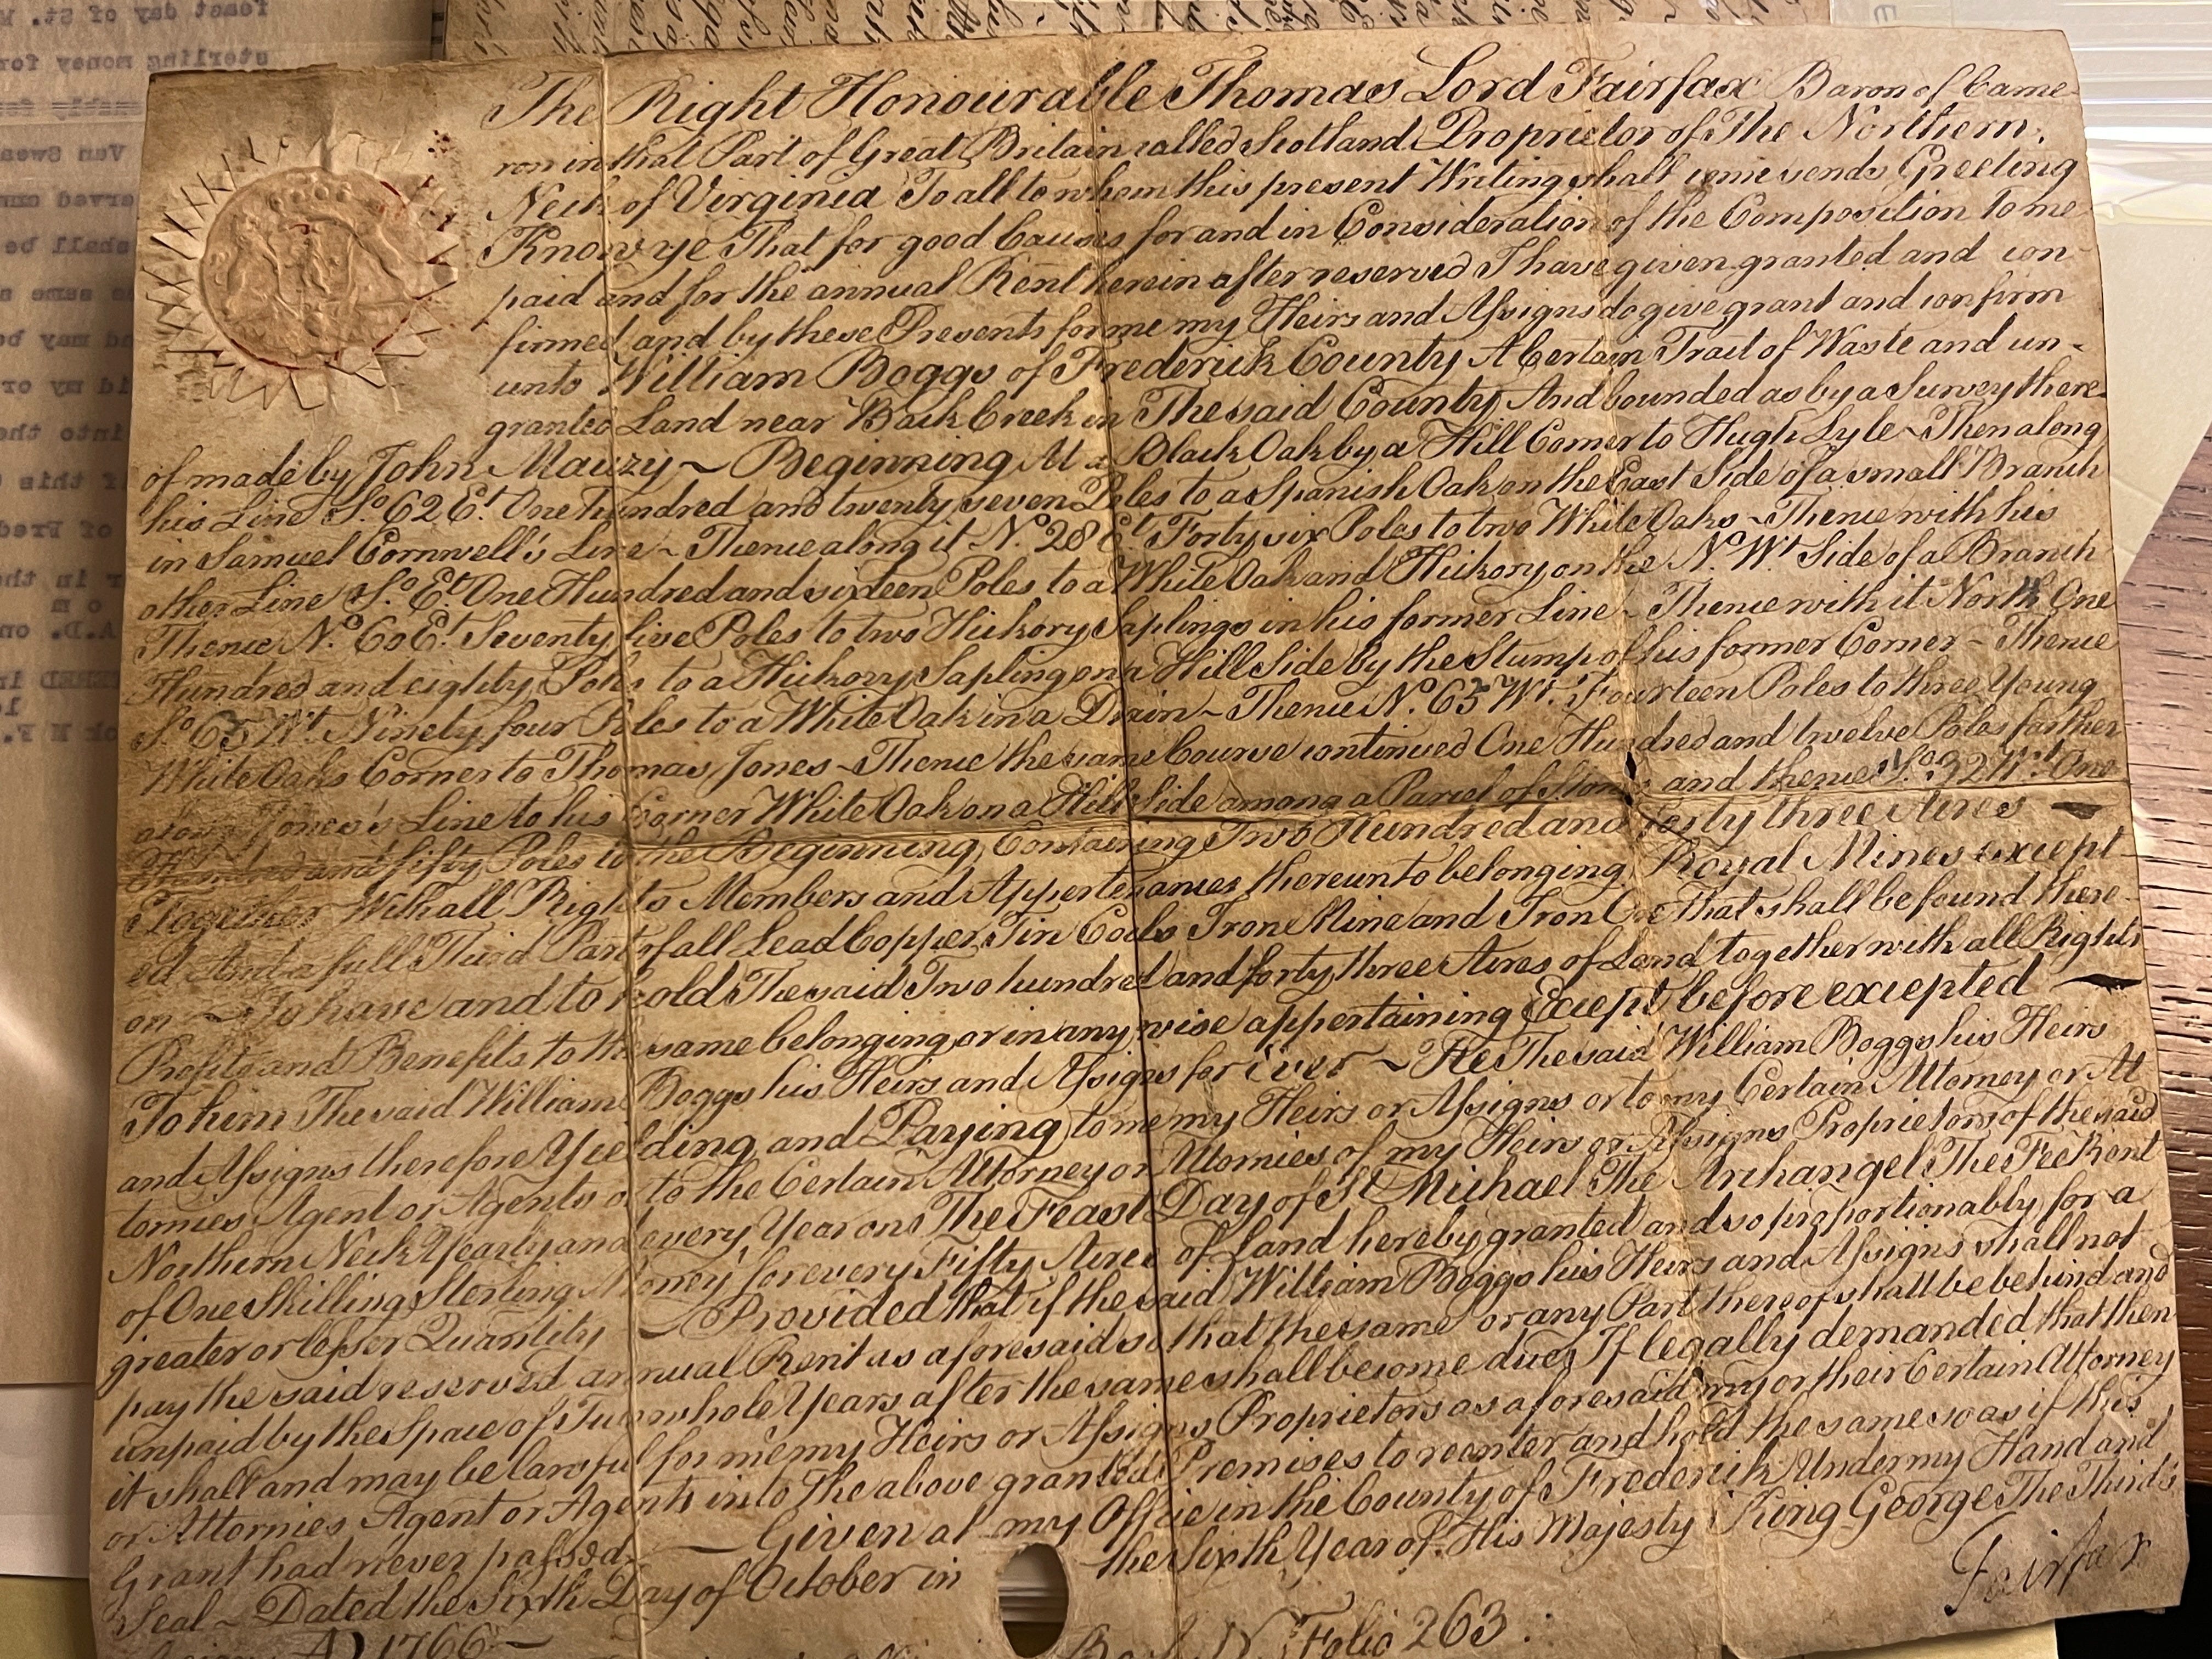 The Right Honourable Thomas Lord Fairfax Baron of Came-
ron in that Part of Great Britain called Scotland Proprietor of The Northern
Neck of Virginia To all to whom this present Writing shall come sends Greeting
Know ye That for good Causes for and in Consideration of the Composition to me
paid and for the annual Rent herein after reserved I have given granted and con
firmed and by these Presents for me my Heirs and Assigns do give grant and confirm
unto William Boggs of Frederick County A Certain Tract of Waste and un-
granted Land near Back Creek in The said County And bounded as by a Survey there-
of made by John Mauzy ~ Beginning At a Black Oak by a Hill Corner to Hugh Lyle ~ Then along
his Line So. 62 Et. One hundred and twenty seven Poles to a Spanish Oak on the East Side of a small Branch
in Samuel Cornwell's Line ~ Thence along it No. 28 Et. Forty six Poles to two White Oaks ~ Thence with his
other Line So. Et. One Hundred and sixteen Poles to a White Oak and Hickory on the No. Wt. Side of a Branch
Thence No. 60 Et. Seventy five Poles to two Hickory Saplings in his former Line ~ Thence with it North One
Hundred and eighty Poles to a Hickory Sapling on a Hill Side by the Stump of his former Corner ~ Thence
So. 65 Wt. Ninety four Poles to a White Oak in a Drain ~ Thence No. 65 Wt. Fourteen Poles to three Young
White Oaks Corner to Thomas Jones ~ Thence the same Course continued One Hundred and twelve Poles farther
along Jones's Line to his Corner White Oak on a Hill Side among a Parcel of Stones and thence So. 32 Wt. One
Hundred and fifty Poles to the Beginning Containing Two Hundred and forty three Acres
Together With all Rights Members and Appertenances thereunto belonging Royal Mines except
ed And a full Third Part of all Lead Copper Tin Coals Iron Mine and Iron Ore That shall be found there-
on ~ To have and to hold The said Two hundred and forty three Acres of Land together with all Rights
Profits and Benefits to the same belonging or in any wise appertaining Except before excepted
To him The said William Boggs his Heirs and Assigns for ever ~ He The said William Boggs his Heirs
and Assigns therefore Yielding and Paying to me my Heirs or Assigns or to my Certain Attorney or At
tornies Agent or Agents or to the Certain Attorney or Attornies of my Heirs or Assigns Proprietors of the said
Northern Neck Yearly and every Year on The Feast Day of St Michael The Archangel The Fee Rent
of One Shilling Sterling Money for every Fifty Acres of Land hereby granted and so proportionably for a
greater or lesser Quantity ~ Provided that if the said William Boggs his Heirs and Assigns shall not
pay the said reserved annual Rent as aforesaid so that the same or any Part thereof shall be behind and
unpaid by the Space of Two whole Years after the same shall become due If legally demanded that then
it shall and may be lawful for me my Heirs or Assigns Proprietors as aforesaid my or their Certain Attorney
or Attornies Agent or Agents into The above granted Premises to reenter and hold the same so as if this
Grant had never passed ~ Given at my Office in the County of Frederick Under my Hand and
Seal ~ Dated the Sixth Day of October in the Sixth Year of His Majesty King George The Third's
AD 1766 ~
Fairfax
Book N Folio 263
feast day of St.
sterling money for
Van Swea
shall be
same
may be
my or
into the
if this
of Fred
in the
A.D. on